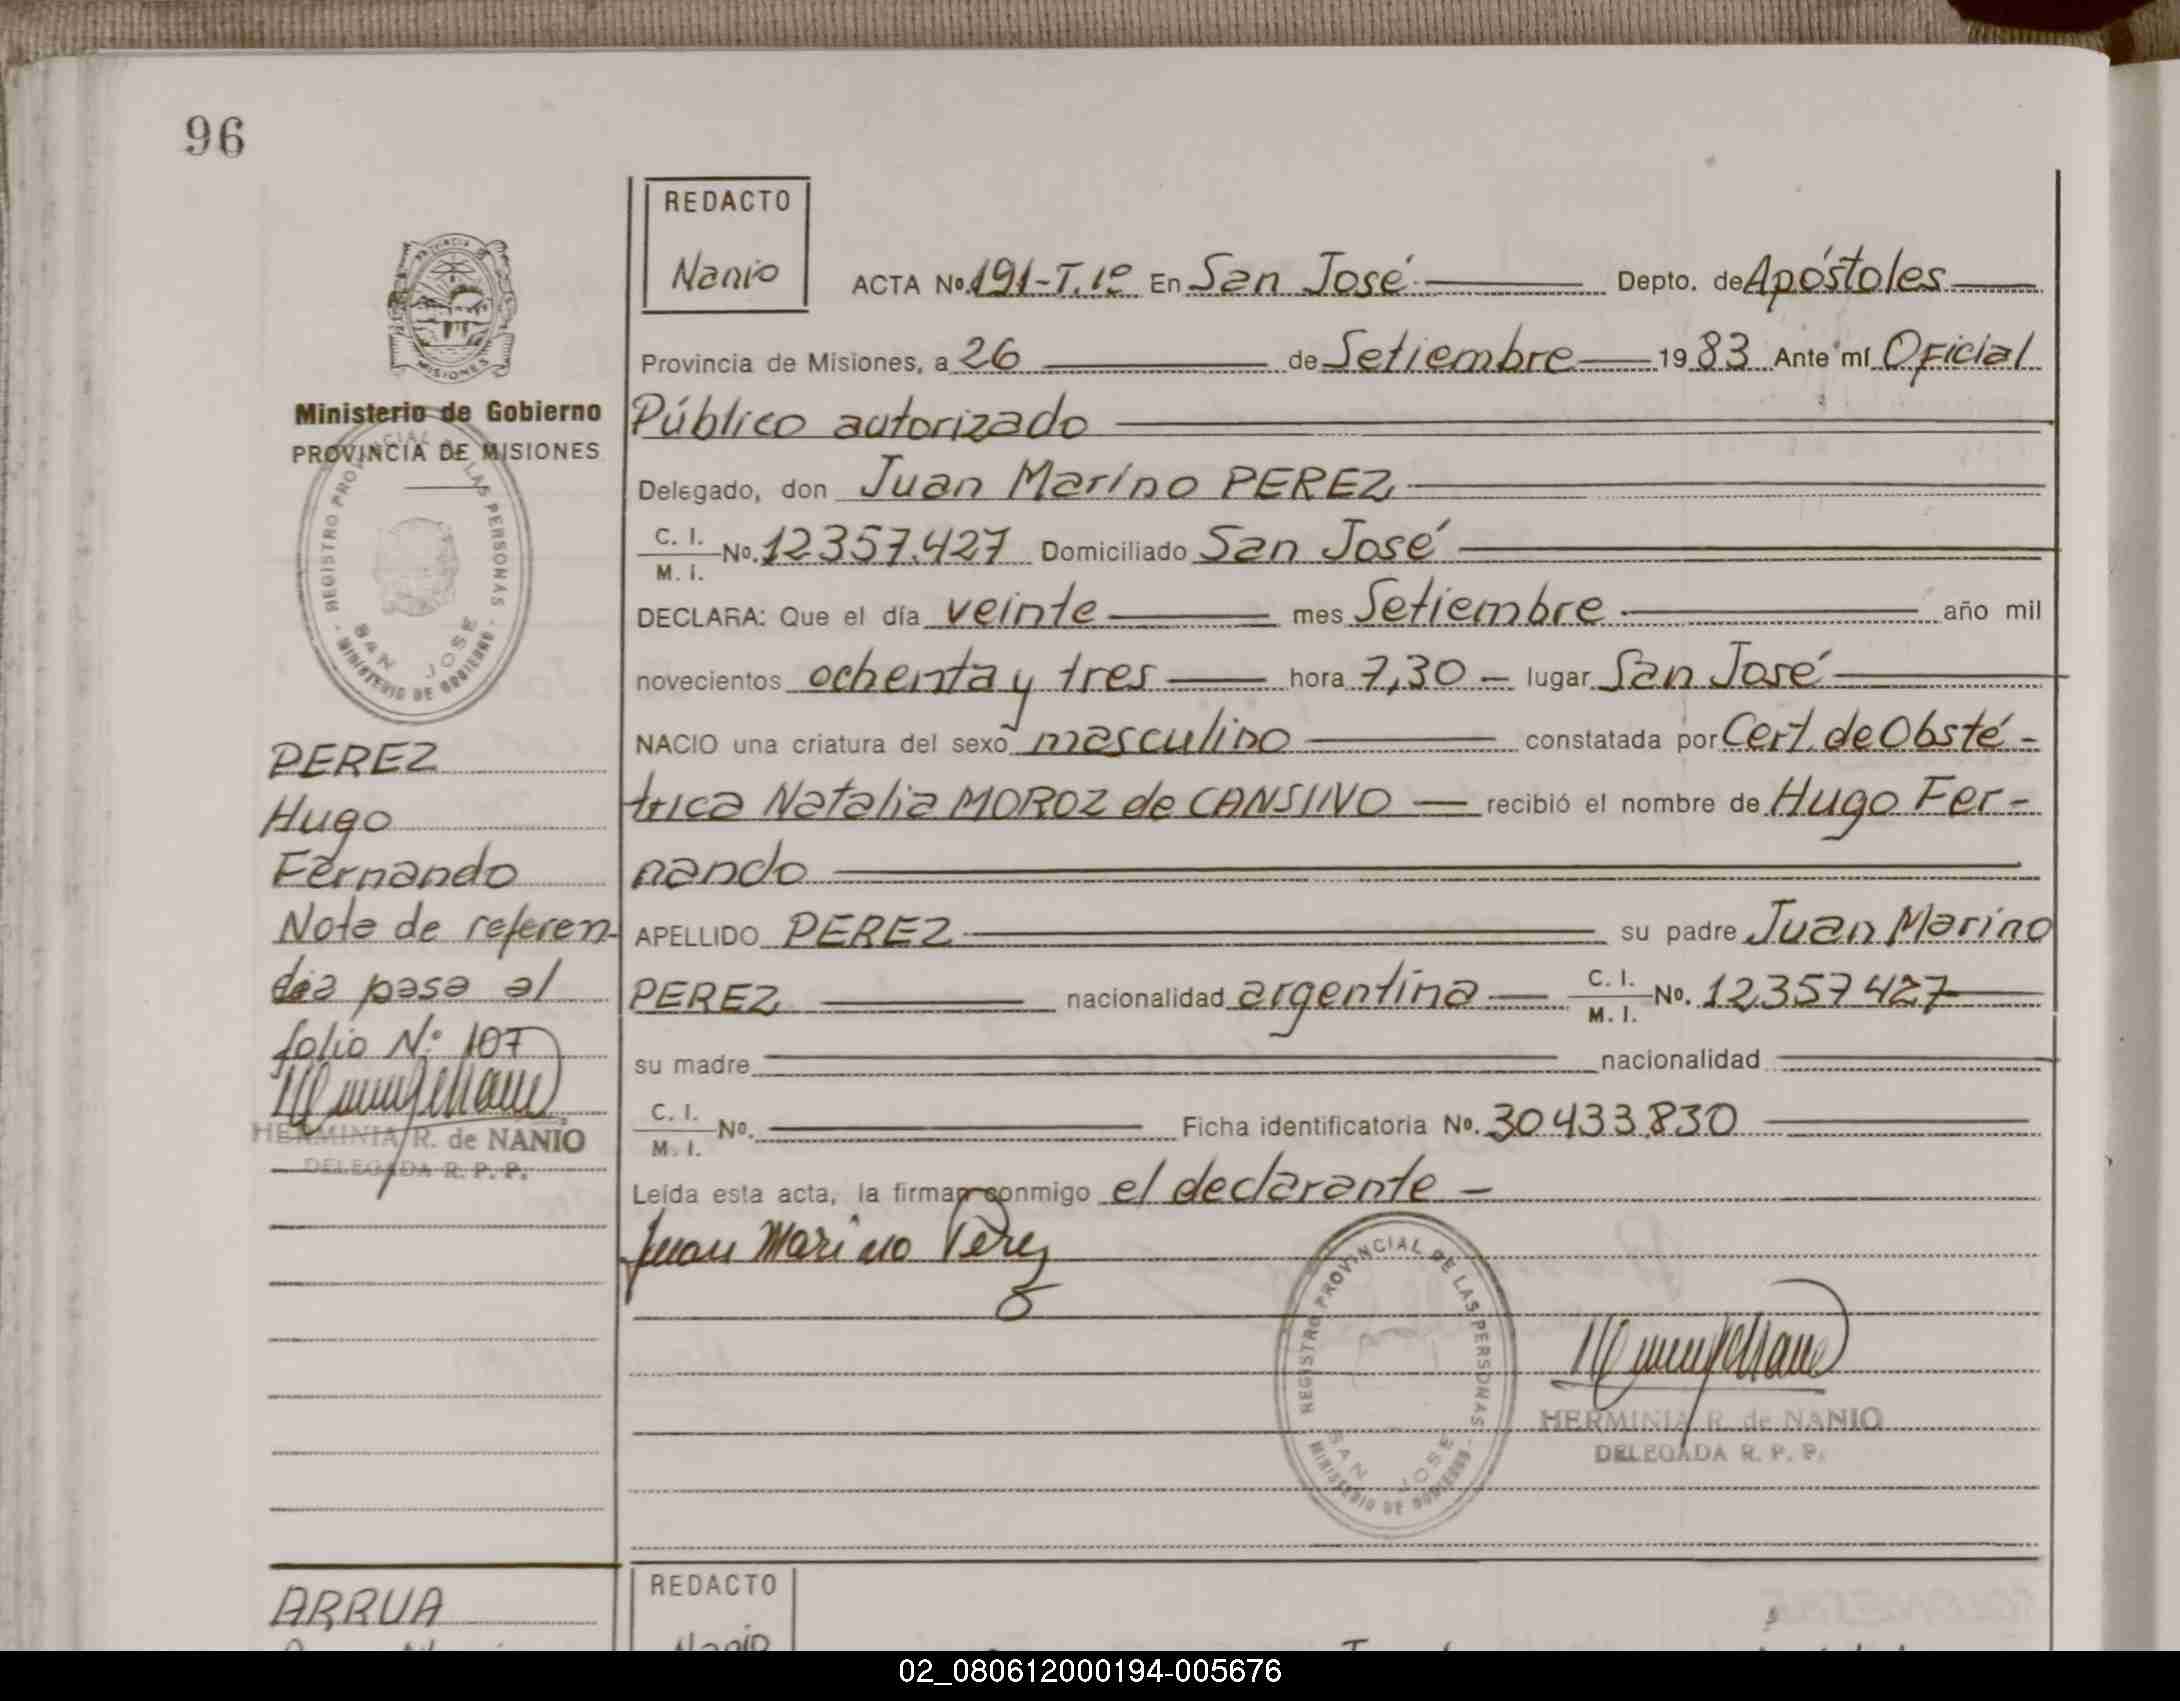 96
REDACTO
Nanio
ACTA Nº. 191-T.1º En San José Depto. de Apóstoles
Provincia de Misiones, a 26 de Setiembre 1983 Ante mí Oficial
Público autorizado
Delegado, don Juan Marino PEREZ
C. I.
M. I. Nº. 12357.427 Domiciliado San José
DECLARA: Que el día veinte mes Setiembre año mil
novecientos ochenta y tres hora 7,30 - lugar San José
NACIO una criatura del sexo masculino constatada por Cert. de Obsté-
trica Natalia MOROZ de CANSINO recibió el nombre de Hugo Fer-
nando
APELLIDO PEREZ su padre Juan Marino
PEREZ nacionalidad argentina C. I.
M. I. Nº. 12357427
su madre nacionalidad
C. I.
M. I. Nº. Ficha identificatoria Nº. 30433.830
Leída esta acta, la firman conmigo el declarante -
Juan Marino Perez
REGISTRO PROVINCIAL DE LAS PERSONAS
SAN JOSE
- MINISTERIO DE GOBIERNO -
HERMINIA R. de NANIO
DELEGADA R. P. P.
PROVINCIA DE
MISIONES
Ministerio de Gobierno
PROVINCIA DE MISIONES
REGISTRO PROVINCIAL DE LAS PERSONAS
SAN JOSE
- MINISTERIO DE GOBIERNO -
PEREZ
Hugo
Fernando
Nota de referen-
cia pasa al
folio Nº 107
HERMINIA R. de NANIO
DELEGADA R. P. P.
ARRUA
REDACTO
Nanio
02_080612000194-005676